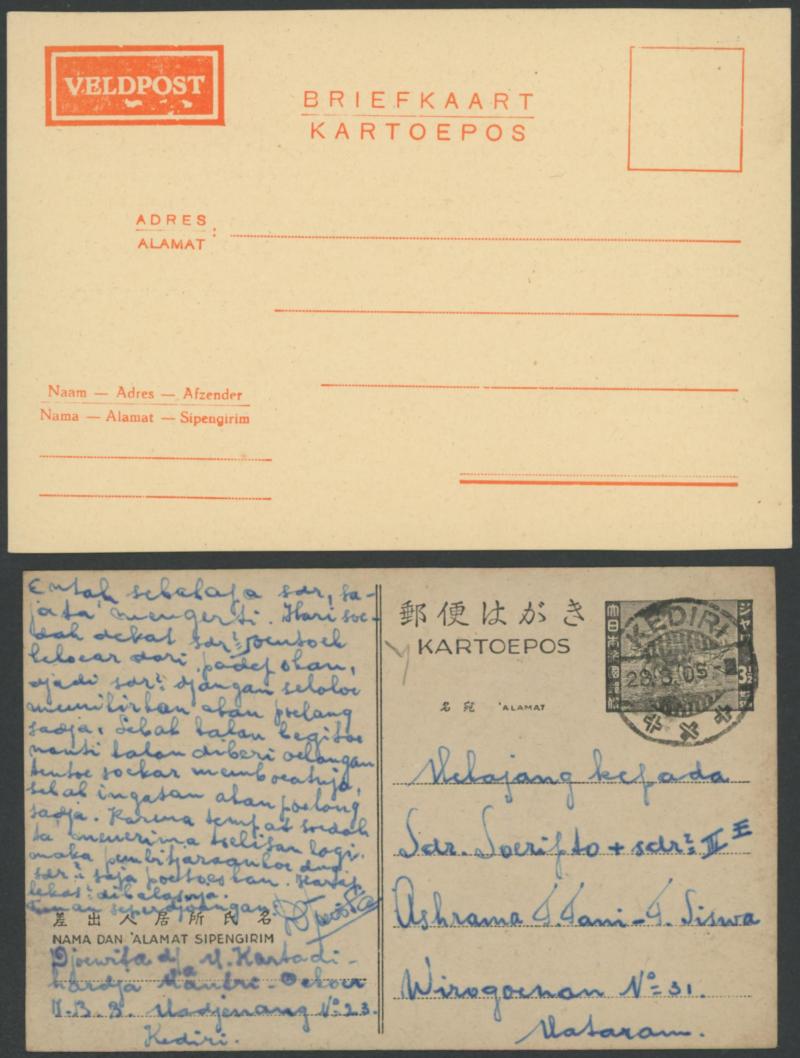 VELDPOST
BRIEFKAART
KARTOEPOS
ADRES :
ALAMAT
Naam — Adres — Afzender
Nama — Alamat — Sipengirim
Entah sebabaja sdr, sa-
ja ta' mengerti. Hari soe-
dah dekat sdr² oentoek
keloear dari
djadi sdr² djangan seloloe
memikirkan akan poelang
sadja. Sebab kalau begitoe
nanti kalau diberi oelangan
tentoe soekar memboeatnja,
sebab ingatan akan poelang
sadja. Karena tempat soedah
ta' menerima toelisan lagi.
maka pembitjaraankoe dng.
sdr² saja poetoeskan. Harap
lekas² dibalasnja.
Teman seperdjoangan.
差出人居所氏名
NAMA DAN 'ALAMAT SIPENGIRIM
Djoewita d/a M. Kartadi-
hardja Mantri-Oekoer
Modjenang Nº 23.
Kediri.
郵便はがき
KARTOEPOS
名宛 'ALAMAT
大日本帝国郵便
ジャワ
3½
KEDIRI
28.8.05
Melajang kepada
Sdr. Soeripto + sdr² III
Ashrama T. Tani - T. Siswa
Wirogoenan Nº 31.
Mataram.